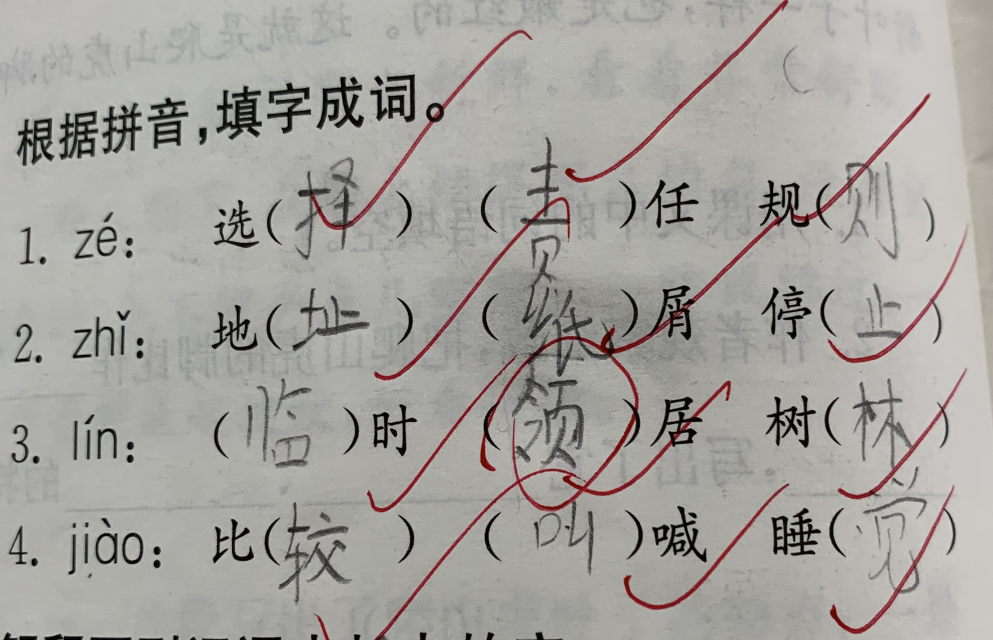 根据拼音，填字成词。
1. zé： 选(择) (责)任 规(则)
2. zhǐ： 地(址) (纸)屑 停(止)
3. lín： (临)时 (领)居 树(林)
4. jiào： 比(较) (叫)喊 睡(觉)